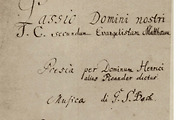 Passio Domini nostri
J. C. secundum Evangelistam Matthaeum
Poesia per Dominum Henrici
alias Picander dictus
Musica di G. S. Bach.